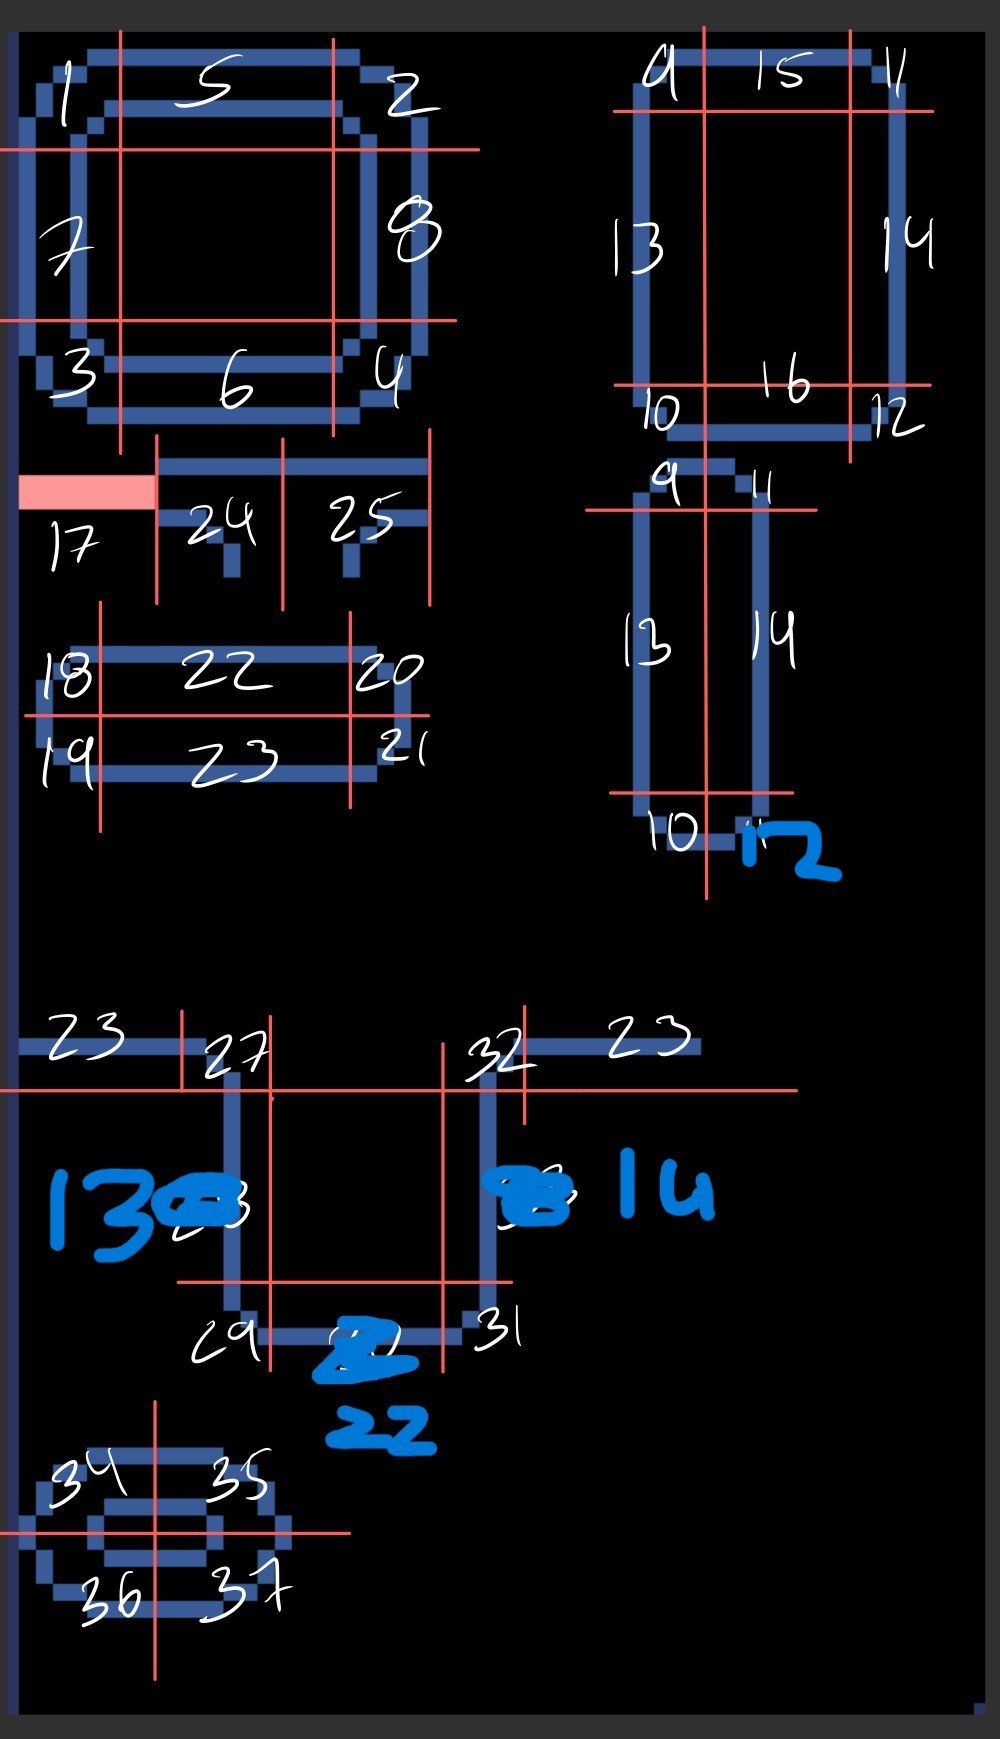 1 5 2
7 8
3 6 4
9 15 11
13 14
16
10 12
17 24 25
9 11
13 14
10 12
18 22 20
19 23 21
23 27 32 23
13 14
29 31
22
34 35
36 37